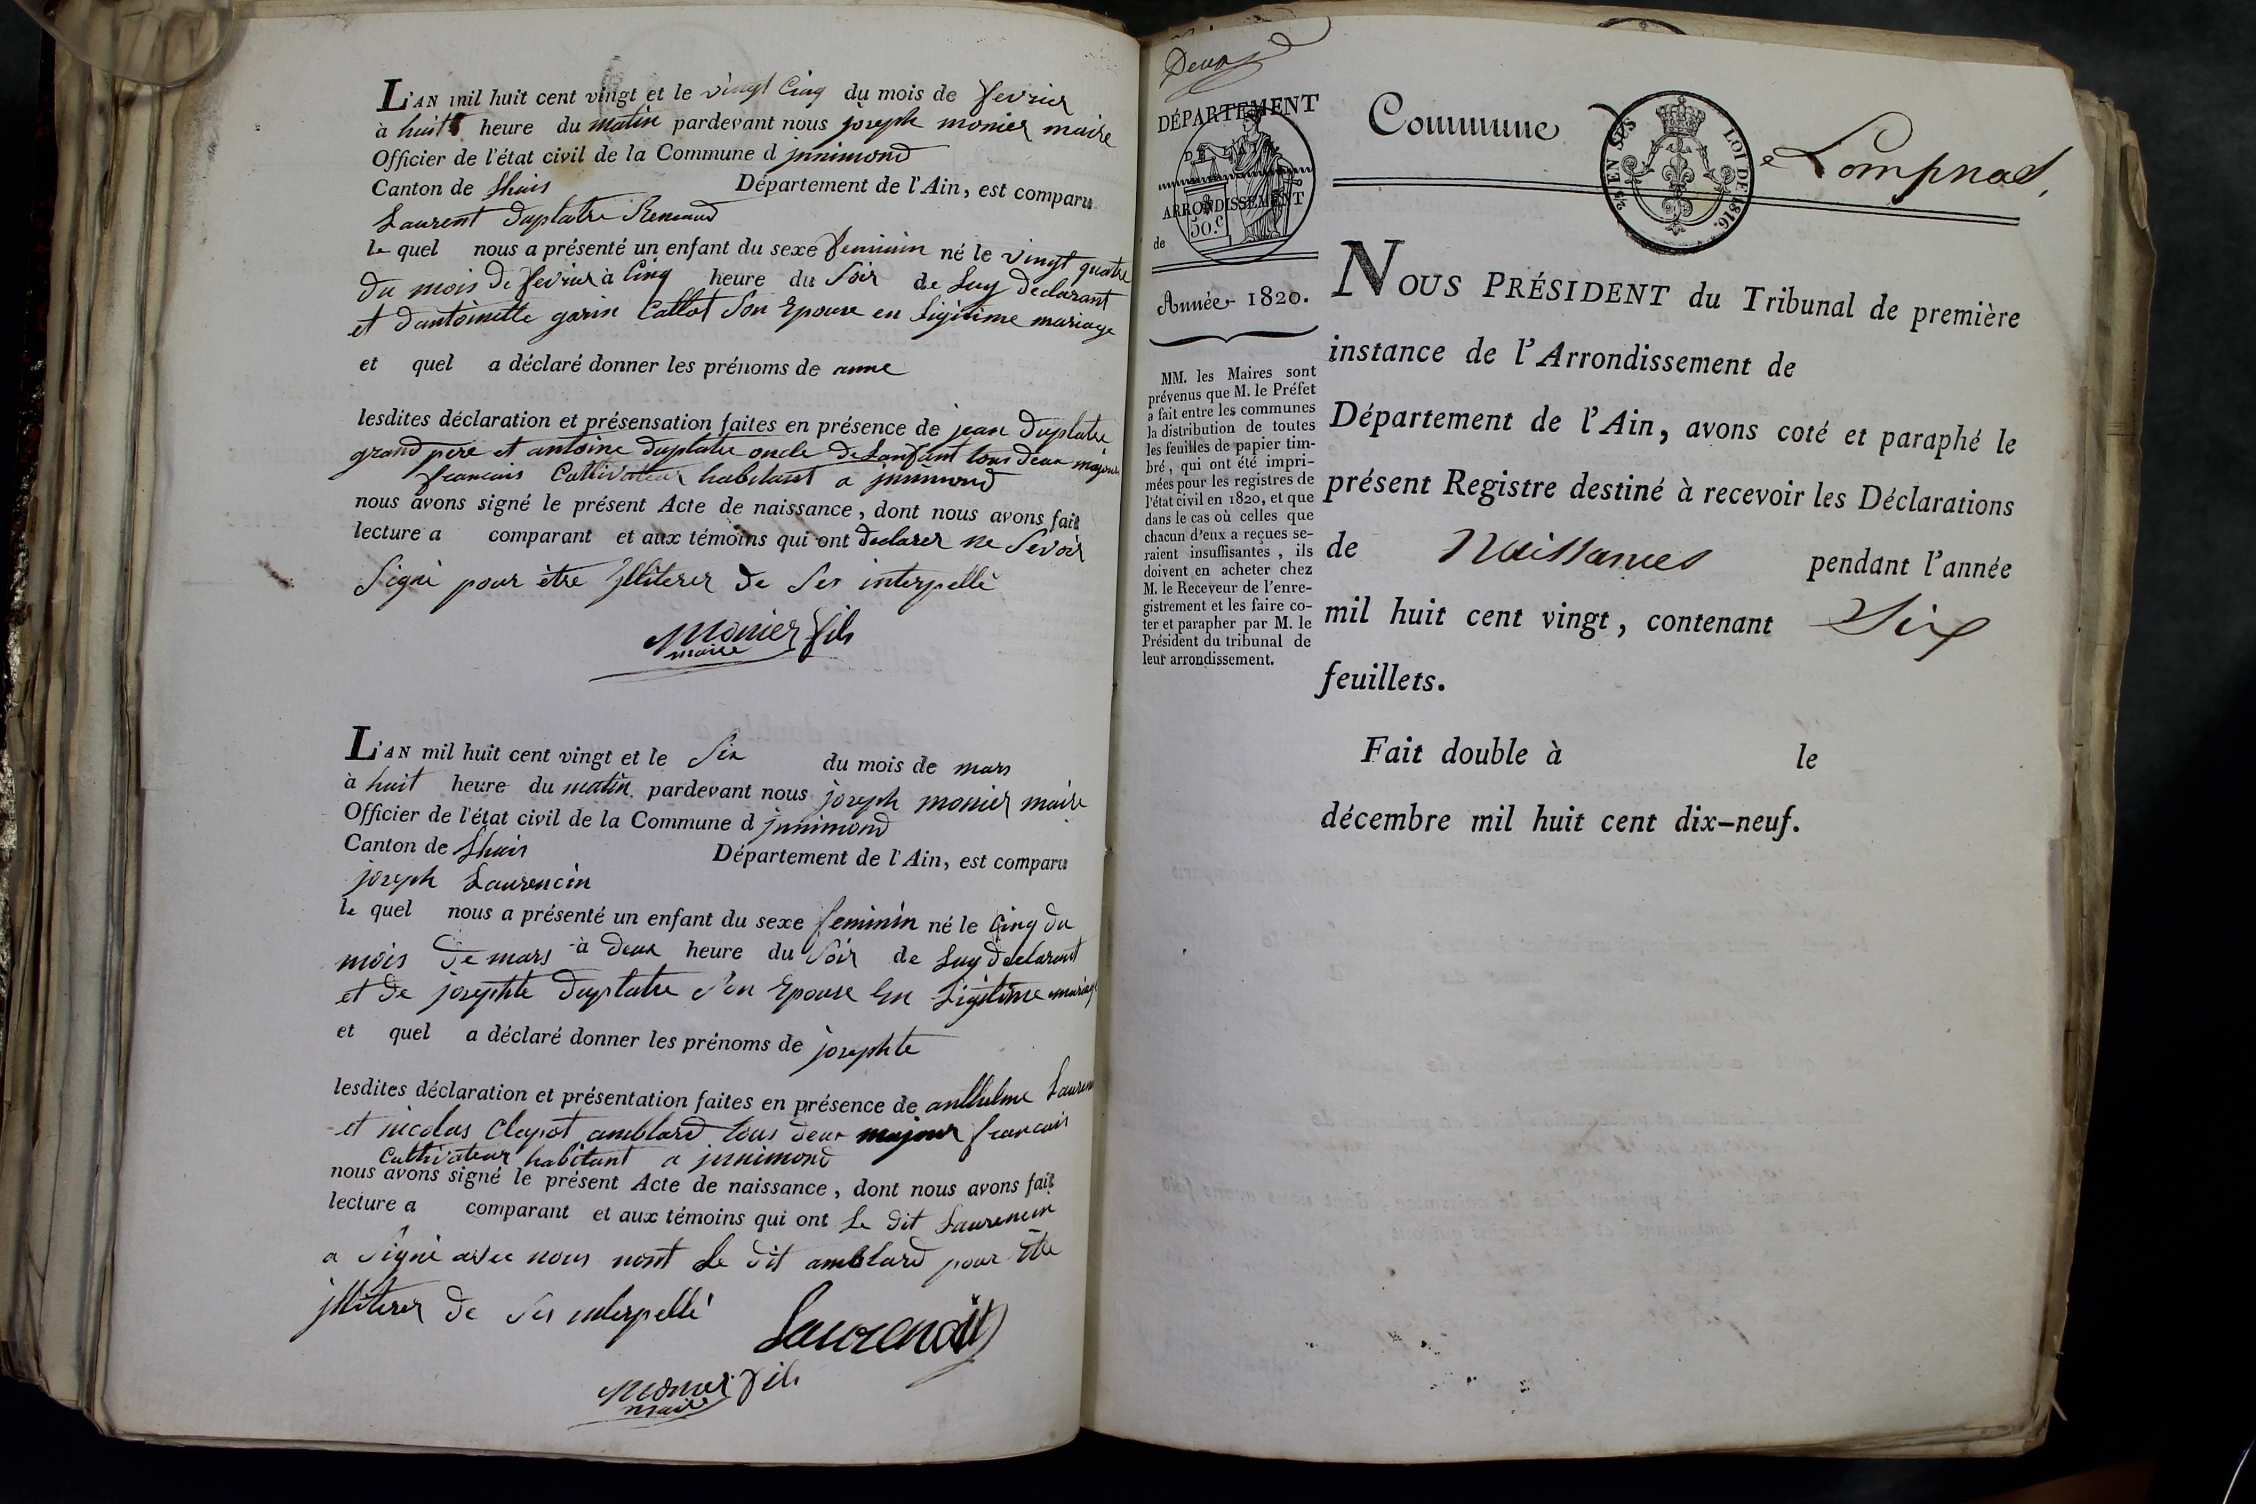 L'AN mil huit cent vingt et le vingt Cinq du mois de fevrier
à huit heure du matin pardevant nous joseph monier maire
Officier de l'état civil de la Commune d jnnimond
Canton de Lhuis Département de l'Ain, est comparu
Laurent duplatre Renaud
le quel nous a présenté un enfant du sexe feminin né le vingt quatre
du mois de fevrier à Cinq heure du Soir de Luy declarant
et dantoinette garin Callot Son Epouse en Ligitime mariage
et quel a déclaré donner les prénoms de anne
lesdites déclaration et présensation faites en présence de jean duplatre
grand pere et antoine duplatre oncle de Lanfant tous deux majour
francais Cultivateur habitant a jnnimond
nous avons signé le présent Acte de naissance, dont nous avons fait
lecture a comparant et aux témoins qui ont declarer ne Sevoir
Signé pour être jlliterer de Ser interpellé
Monier fils
maire
L'AN mil huit cent vingt et le Six du mois de mars
à huit heure du matin pardevant nous joseph monier maire
Officier de l'état civil de la Commune d jnnimond
Canton de Lhuis Département de l'Ain, est comparu
joseph Laurencin
le quel nous a présenté un enfant du sexe feminin né le Cinq du
mois de mars à deux heure du Soir de Luy declarant
et de josephte duplatre Son Epouse En Ligitime mariage
et quel a déclaré donner les prénoms de josephte
lesdites déclaration et présentation faites en présence de anthelme Lauren
et nicolas Clepot amblard tous deux majour francais
Cultivateur habitant a jnnimond
nous avons signé le présent Acte de naissance, dont nous avons fait
lecture a comparant et aux témoins qui ont Le dit Laurencin
a Signé avec nous nont Le dit amblard pour Etre
jlliterer de Ser interpellé
Laurencin
Monier fils
maire
Deux
DÉPARTEMENT
DE L'AIN.
ARRONDISSEMENT
50.c
de
Année 1820.
MM. les Maires sont
prévenus que M. le Préfet
a fait entre les communes
la distribution de toutes
les feuilles de papier tim-
bré, qui ont été impri-
mées pour les registres de
l'état civil en 1820, et que
dans le cas où celles que
chacun d'eux a reçues se-
raient insuffisantes, ils
doivent en acheter chez
M. le Receveur de l'enre-
gistrement et les faire co-
ter et parapher par M. le
Président du tribunal de
leur arrondissement.
Commune de Lompnas,
EN SUS LOI DE 1816.
NOUS PRÉSIDENT du Tribunal de première
instance de l'Arrondissement de
Département de l'Ain, avons coté et paraphé le
présent Registre destiné à recevoir les Déclarations
de Naissances pendant l'année
mil huit cent vingt, contenant Six
feuillets.
Fait double à le
décembre mil huit cent dix-neuf.